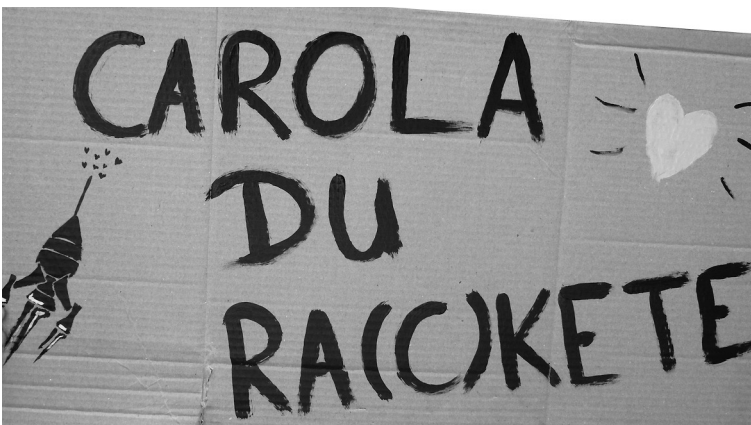 CAROLA
DU
RA(C)KETE